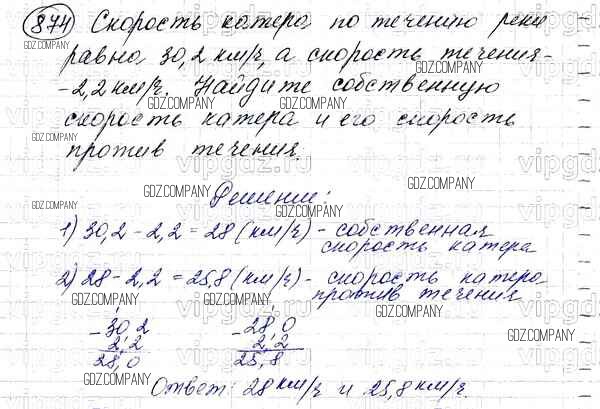 874 Скорость катера по течению реки
GDZ.COMPANY
равна 30,2 км/ч, а скорость течения-
GDZ.COMPANY
-2,2 км/ч. Найдите собственную
GDZ.COMPANY GDZ.COMPANY
скорость катера и его скорость
GDZ.COMPANY
против течения.
GDZ.COMPANY GDZ.COMPANY
Решение:
GDZ.COMPANY
1) 30,2 - 2,2 = 28 (км/ч) - собственная
скорость катера
GDZ.COMPANY
2) 28 - 2,2 = 25,8 (км/ч) - скорость катера
против течения
GDZ.COMPANY GDZ.COMPANY
- 30,2 - 28,0
2,2 2,2
28,0 25,8
GDZ.COMPANY GDZ.COMPANY
Ответ: 28 км/ч и 25,8 км/ч.